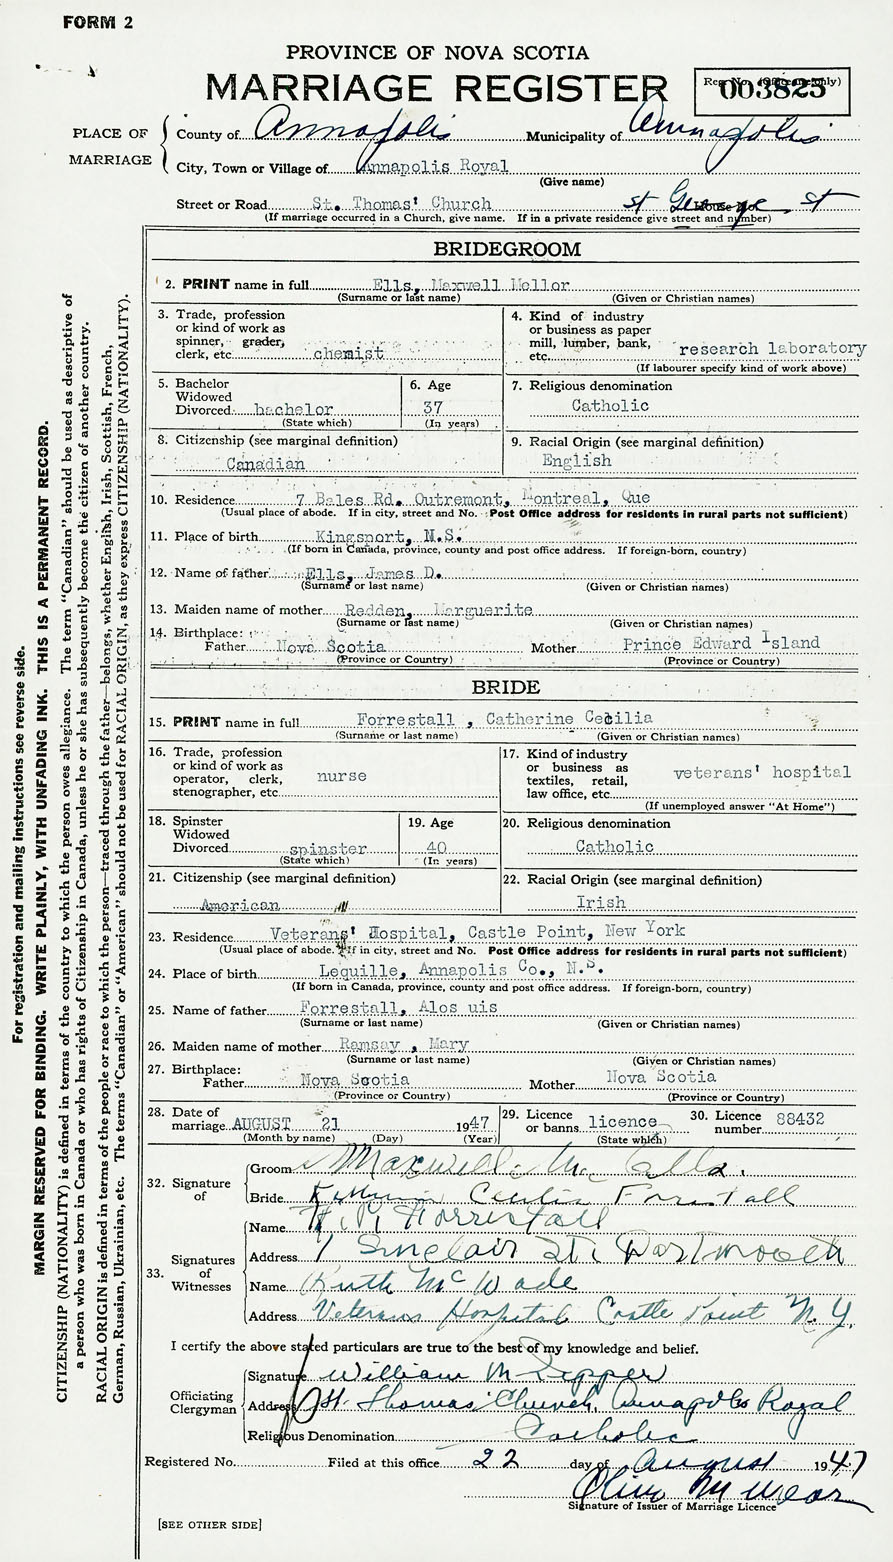 FORM 2
PROVINCE OF NOVA SCOTIA
MARRIAGE REGISTER
Reg. No. (Office use only)
003825
PLACE OF MARRIAGE
County of Annapolis Municipality of Annapolis
City, Town or Village of Annapolis Royal
(Give name)
Street or Road St. Thomas' Church st George st
(If marriage occurred in a Church, give name. If in a private residence give street and number)
BRIDEGROOM
2. PRINT name in full Ells, Maxwell Mellor
(Surname or last name) (Given or Christian names)
3. Trade, profession
or kind of work as
spinner, grader,
clerk, etc. chemist
4. Kind of industry
or business as paper
mill, lumber, bank,
etc. research laboratory
(If labourer specify kind of work above)
5. Bachelor
Widowed
Divorced bachelor
(State which)
6. Age
37
(In years)
7. Religious denomination
Catholic
8. Citizenship (see marginal definition)
Canadian
9. Racial Origin (see marginal definition)
English
10. Residence 7 Bales Rd. Outremont, Montreal, Que
(Usual place of abode. If in city, street and No. Post Office address for residents in rural parts not sufficient)
11. Place of birth Kingsport, N.S.
(If born in Canada, province, county and post office address. If foreign-born, country)
12. Name of father Ells, James D.
(Surname or last name) (Given or Christian names)
13. Maiden name of mother Redden, Marguerite
(Surname or last name) (Given or Christian names)
14. Birthplace:
Father Nova Scotia Mother Prince Edward Island
(Province or Country) (Province or Country)
BRIDE
15. PRINT name in full Forrestall , Catherine Cecilia
(Surname or last name) (Given or Christian names)
16. Trade, profession
or kind of work as
operator, clerk,
stenographer, etc. nurse
17. Kind of industry
or business as
textiles, retail,
law office, etc. veterans' hospital
(If unemployed answer "At Home")
18. Spinster
Widowed
Divorced spinster
(State which)
19. Age
40
(In years)
20. Religious denomination
Catholic
21. Citizenship (see marginal definition)
American
22. Racial Origin (see marginal definition)
Irish
23. Residence Veterans' Hospital, Castle Point, New York
(Usual place of abode. If in city, street and No. Post Office address for residents in rural parts not sufficient)
24. Place of birth Lequille, Annapolis Co., N.S.
(If born in Canada, province, county and post office address. If foreign-born, country)
25. Name of father Forrestall, Alos uis
(Surname or last name) (Given or Christian names)
26. Maiden name of mother Ramsay , Mary
(Surname or last name) (Given or Christian names)
27. Birthplace:
Father Nova Scotia Mother Nova Scotia
(Province or Country) (Province or Country)
28. Date of
marriage AUGUST 21 1947
(Month by name) (Day) (Year)
29. Licence
or banns licence
(State which)
30. Licence
number 88432
32. Signature of
Groom Maxwell M. Ells.
Bride Cecilia Forrestall
33. Signatures of Witnesses
Name Forrestall
Address 1 Sinclair St. Dartmouth
Name Ruth McWade
Address Veterans Hospital Castle Point N.Y.
I certify the above stated particulars are true to the best of my knowledge and belief.
Officiating Clergyman
Signature William M
Address St. Thomas' Church, Annapolis Royal
Religious Denomination Catholic
Registered No. Filed at this office 22 day of August 1947
Signature of Issuer of Marriage Licence
[SEE OTHER SIDE]
For registration and mailing instructions see reverse side.
MARGIN RESERVED FOR BINDING. WRITE PLAINLY, WITH UNFADING INK. THIS IS A PERMANENT RECORD.
CITIZENSHIP (NATIONALITY) is defined in terms of the country to which the person owes allegiance. The term "Canadian" should be used as descriptive of
a person who was born in Canada or who has rights of Citizenship in Canada, unless he or she has subsequently become the citizen of another country.
RACIAL ORIGIN is defined in terms of the people or race to which the person—traced through the father—belongs, whether English, Irish, Scottish, French,
German, Russian, Ukrainian, etc. The terms "Canadian" or "American" should not be used for RACIAL ORIGIN, as they express CITIZENSHIP (NATIONALITY).